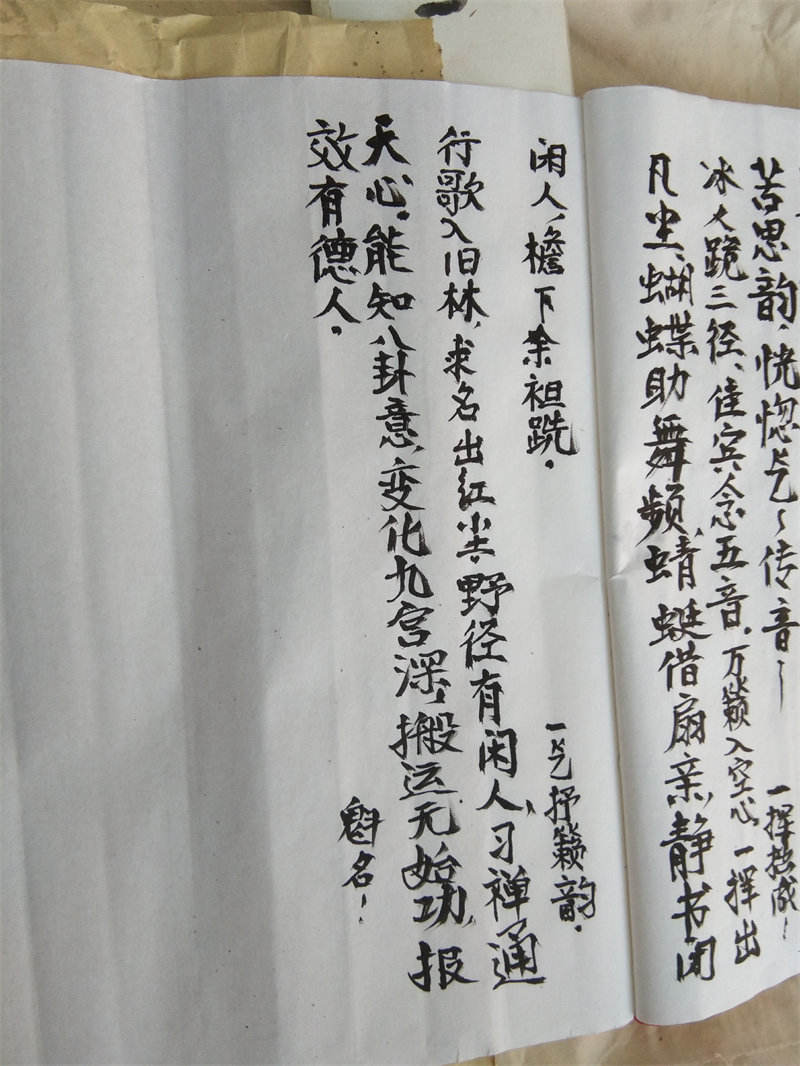 苦思韵，恍惚气~传音~
一挥成！
冰人跪三径、佳宾念五音，万籁入空心，一挥出
凡尘，蝴蝶助舞频，蜻蜓借扇亲，静书闭
闲人，檐下余袒跣。
一气抒籁韵。
行歌入旧林，求名出红尘，野径有闲人，习禅通
天心。能知八卦意，变化九宫深，搬运无始功，报
效有德人。
魁名！